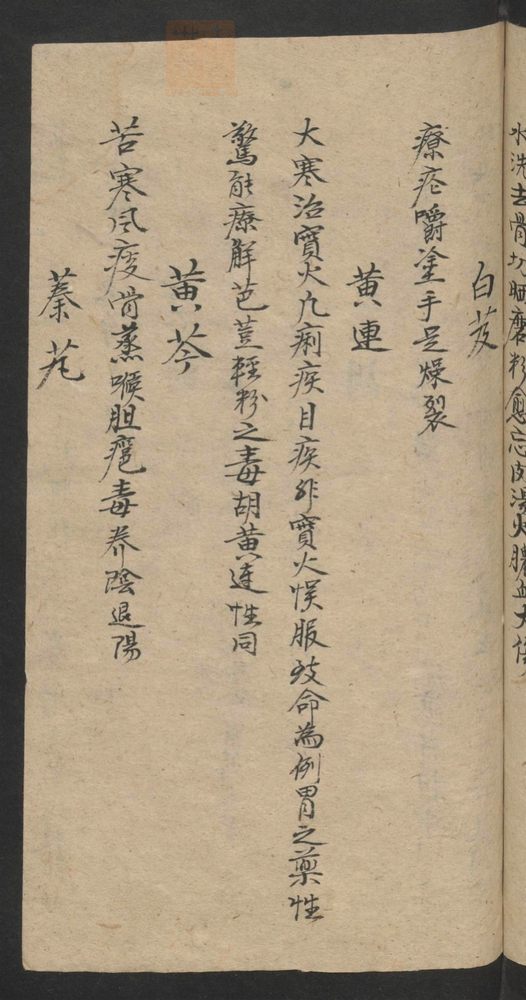 水洗去骨切晒磨粉愈忘肉湯火膿血大
白芨
療疟嚼塗手足燥裂
黄連
大寒治實火凢痢疾目疾非實火悮服致命為例胃之藥性
驚能療解芭荳輕粉之毒胡黄連性同
黄芩
苦寒風疫骨蒸喉胆瘡毒养陰退陽
蓁艽